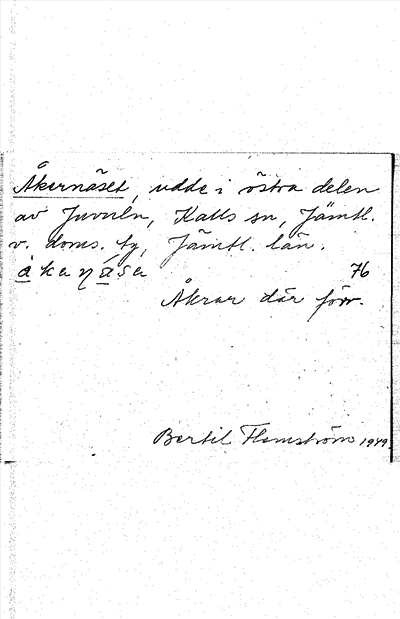 Åkernäset, udde i östra delen
av Juvuln, Kalls sn, Jämtl.
v. doms. tg, Jämtl. län.
76
Åkrar där förr.
Bertil Flemström 1949